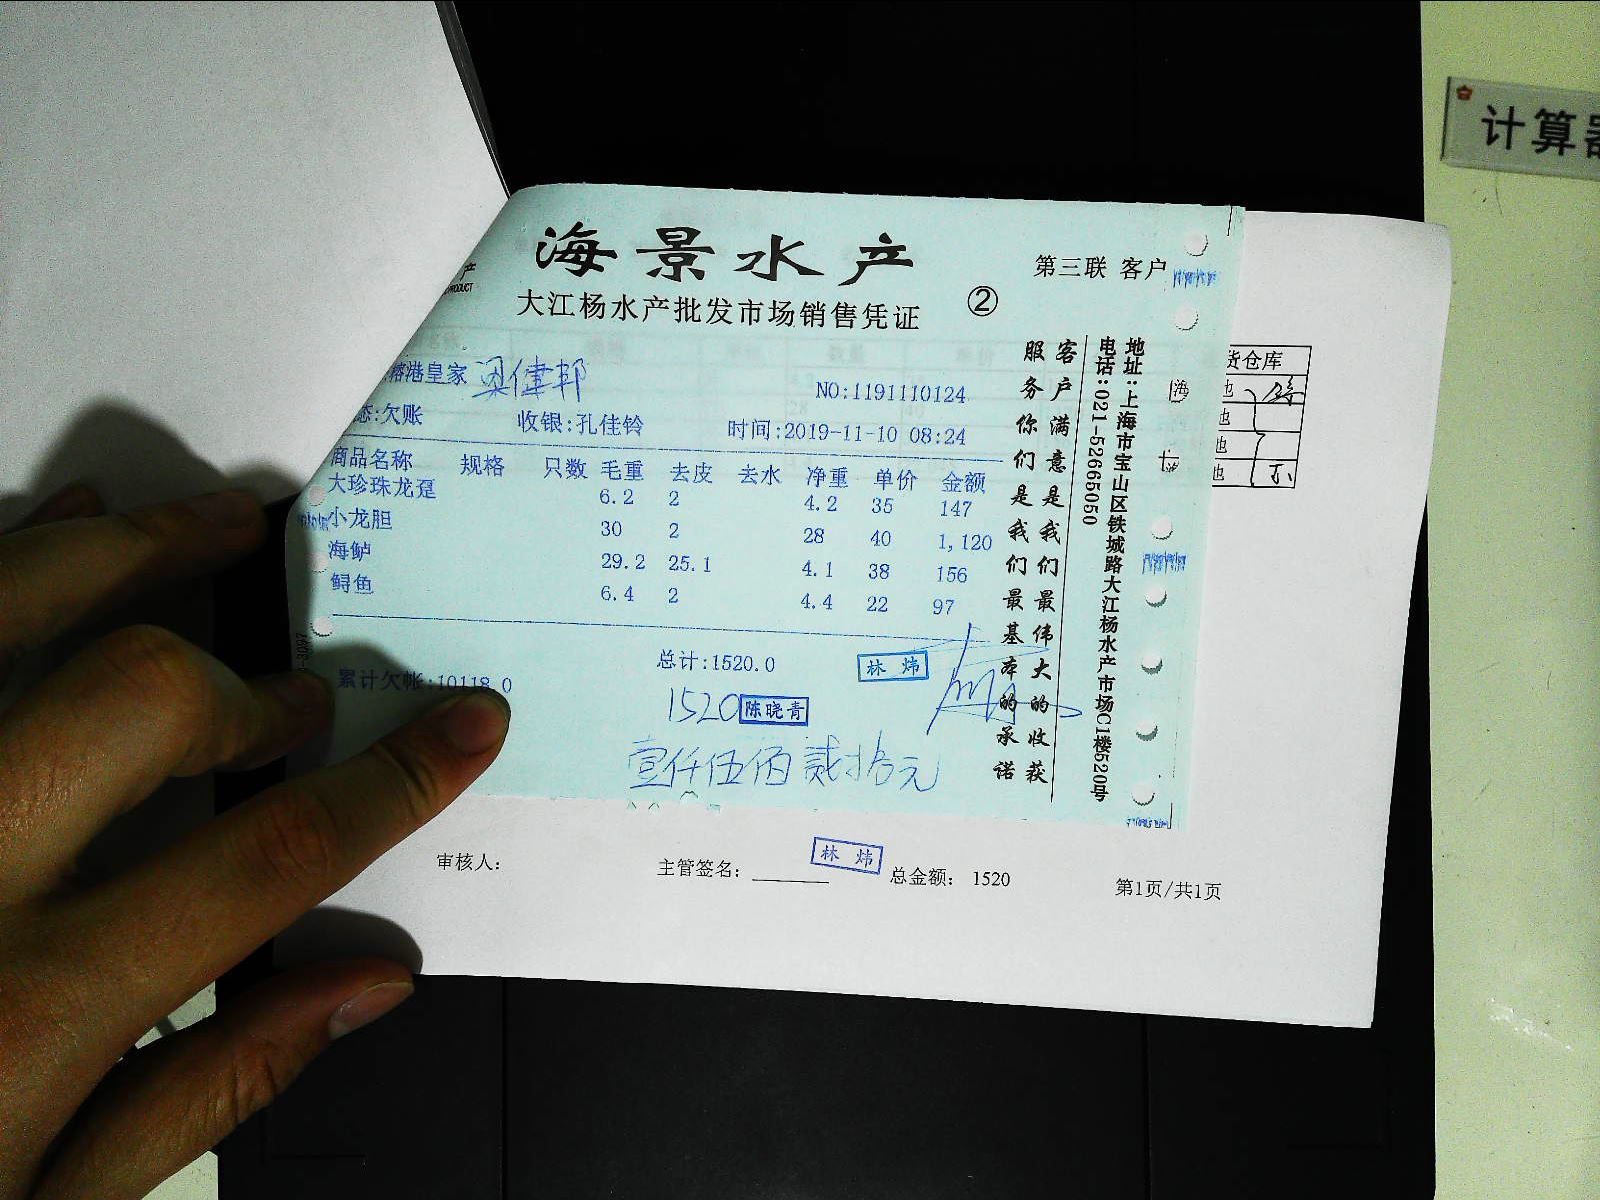 计算器
海景水产
第三联 客户
大江杨水产批发市场销售凭证
②
产
PRODUCT
港皇家 梁健邦
NO:1191110124
态:欠账 收银:孔佳铃 时间:2019-11-10 08:24
商品名称 规格 只数 毛重 去皮 去水 净重 单价 金额
大珍珠龙趸 6.2 2 4.2 35 147
小龙胆 30 2 28 40 1,120
海鲈 29.2 25.1 4.1 38 156
鲟鱼 6.4 2 4.4 22 97
总计:1520.0
林炜
累计欠帐:10118.0
1520
陈晓青
壹仟伍佰贰拾元
客户满意是我们最伟大的收获
服务你们是我们最基本的承诺
地址:上海市宝山区铁城路大江杨水产市场C1楼520号
电话:021-52665050
货仓库
池
池
池
池
海
审核人:
主管签名:
林炜
总金额: 1520
第1页/共1页